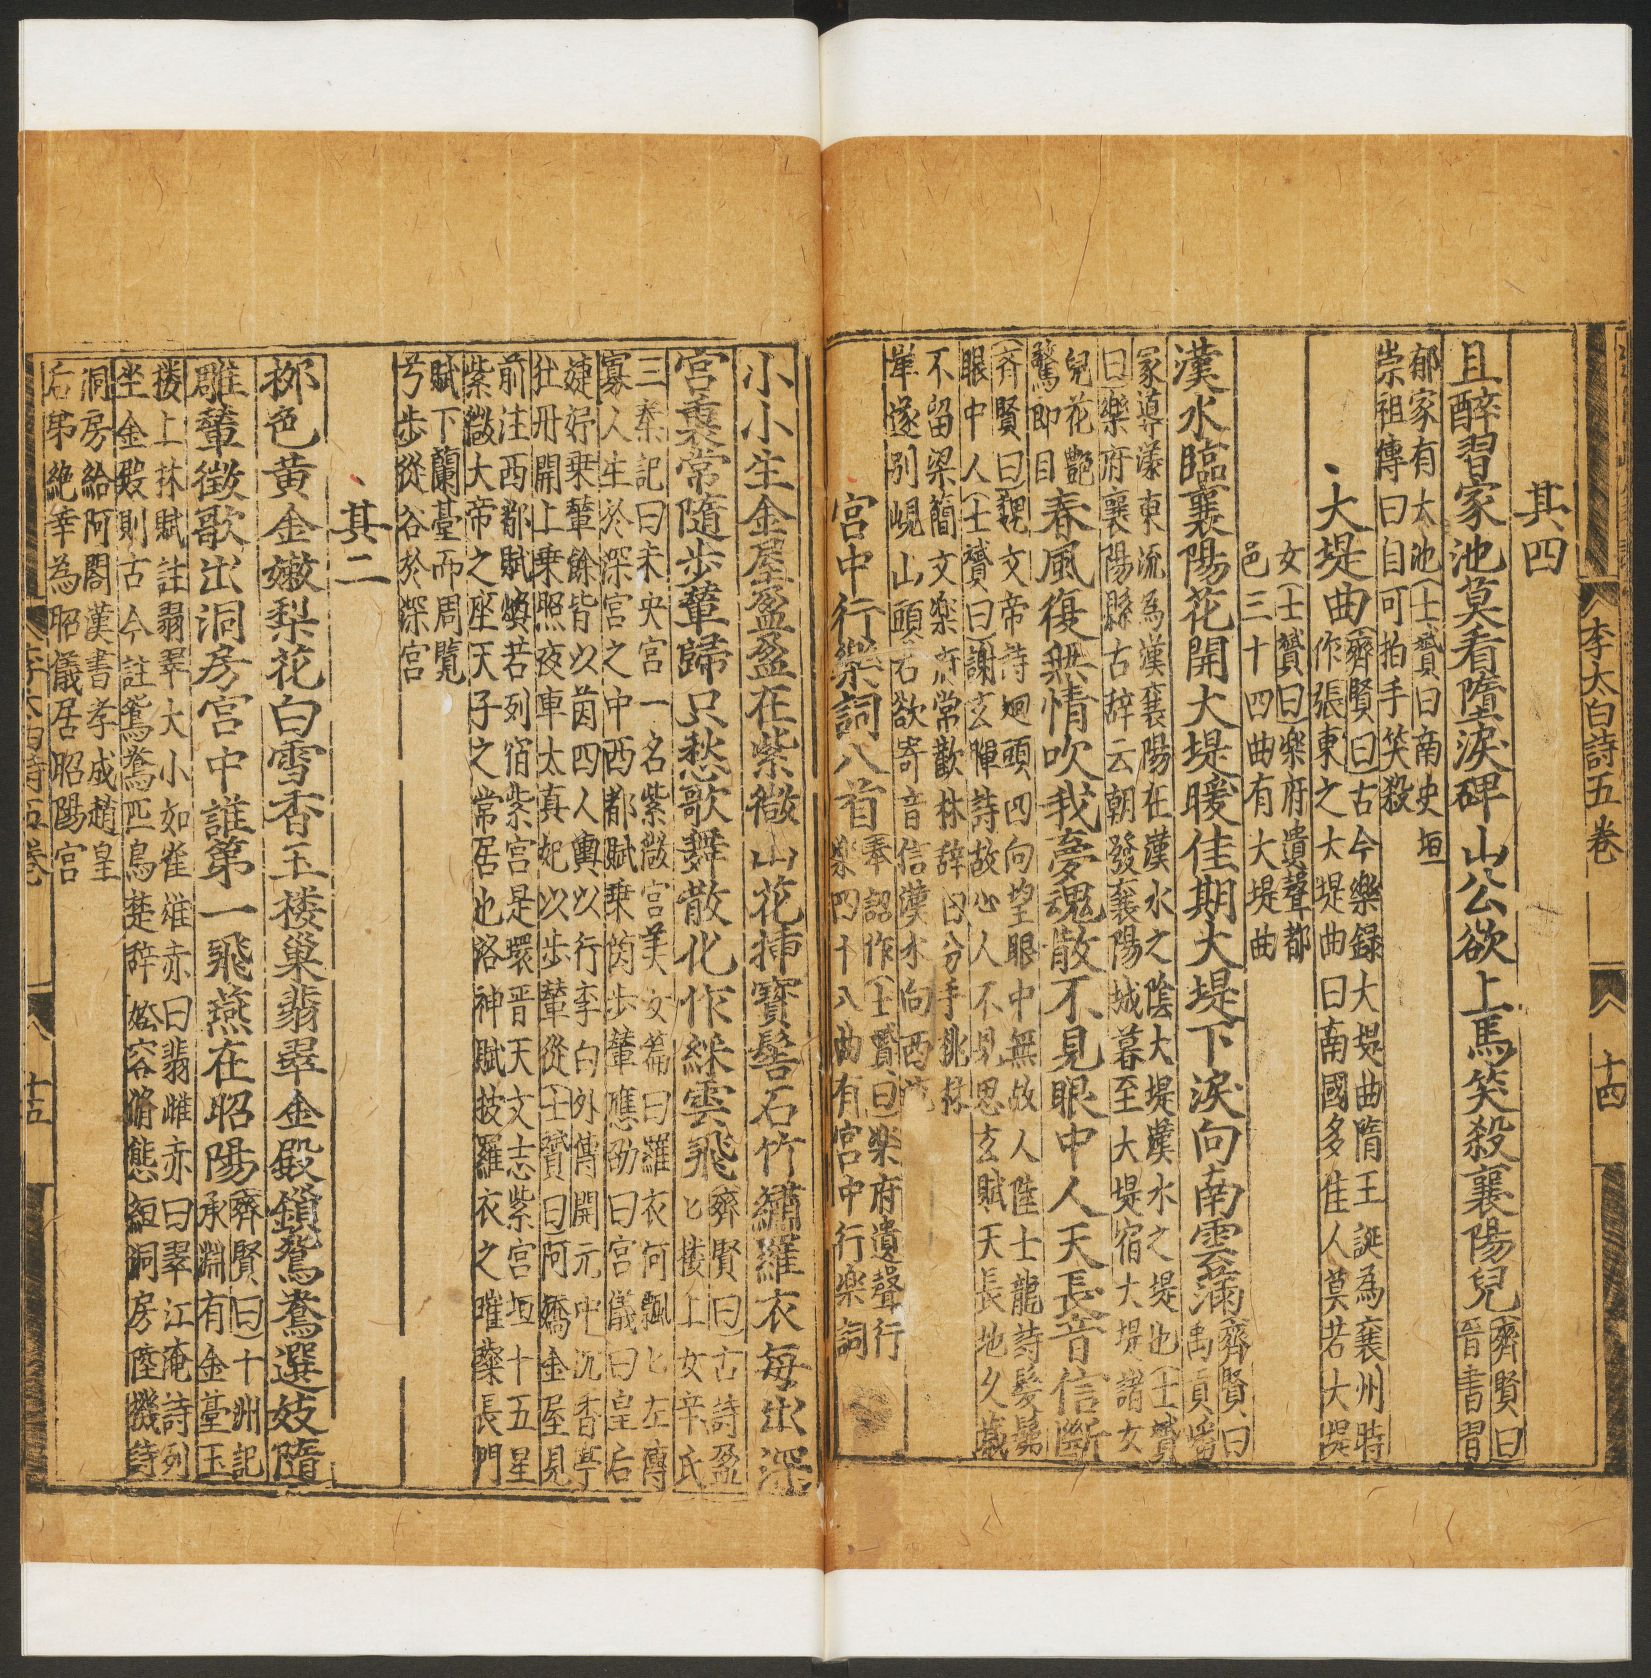 李太白詩五卷 十四
其四
且醉習家池莫看墮淚碑山公欲上馬笑殺襄陽兒
齊賢曰晉書習
郁家有太池士贇曰南史垣
崇祖傳曰自可拍手笑殺
大堤曲
齊賢曰古今樂録大堤曲隋王誕為襄州時
作張柬之大堤曲曰南國多佳人莫若大堤
女士贇曰楽府遺聲都
邑三十四曲有大堤曲
漢水臨襄陽花開大堤暖佳期大堤下淚向南雲滿
齊賢曰
禹貢嶓
冢導漾東流為漢襄陽在漢水之陰大堤漢水之堤也士贇
曰樂府襄陽縣古辞云朝發襄陽城暮至大堤宿大堤諸女
兒花艶
驚郎目
春風復無情吹我夢魂散不見眼中人天長音信斷
齊賢曰魏文帝詩廻頭四向望眼中無故人陸士龍詩髣髴
眼中人士贇曰謝玄暉詩故心人不見思玄賦天長地久歲
不留梁簡文楽府常歡林辞曰分手桃林
岸遂别峴山頭若欲寄音信漢水向西流
宮中行樂詞八首
奉詔作士贇曰楽府遺聲行
楽四十八曲有宮中行楽詞
小小生金屋盈盈在紫微山花揷寳髻石竹繡羅衣每出深
宮裏常隨步輦歸只愁歌舞散化作綵雲飛
齊賢曰古詩盈
匕楼上女辛氏
三秦記曰未央宮一名紫微宮美女篇曰羅衣何飄匕左傳
寡人生於深宮之中西都賦乗茵步輦應劭曰宮儀曰皇后
婕妤乗輦餘皆以茵四人輿以行李白外傳開元中沉香亭
牡丹開上乗照夜車太真妃以歩輦從士贇曰阿嬌金屋見
前注西都賦煥若列宿紫宮是環晋天文志紫宮垣十五星
紫微大帝之座天子之常居也洛神賦披羅衣之璀粲長門
賦下蘭臺而周覽
兮步從容於深宮
其二
栁色黄金嫩梨花白雪香玉楼巢翡翠金殿鎖鴛鴦選妓隨
雕輦徵歌出洞房宮中誰第一飛燕在昭陽
齊賢曰十洲記
承淵有金臺玉
楼上林賦註翡翠大小如雀雄赤曰翡雌赤曰翠江淹詩列
坐金殿則古今註鴛鴦匹鳥楚辞姱容脩態絙洞房陸機詩
洞房結阿閣漢書孝成趙皇
后弟絶幸為昭儀居昭陽宮
李太白詩五卷 十五